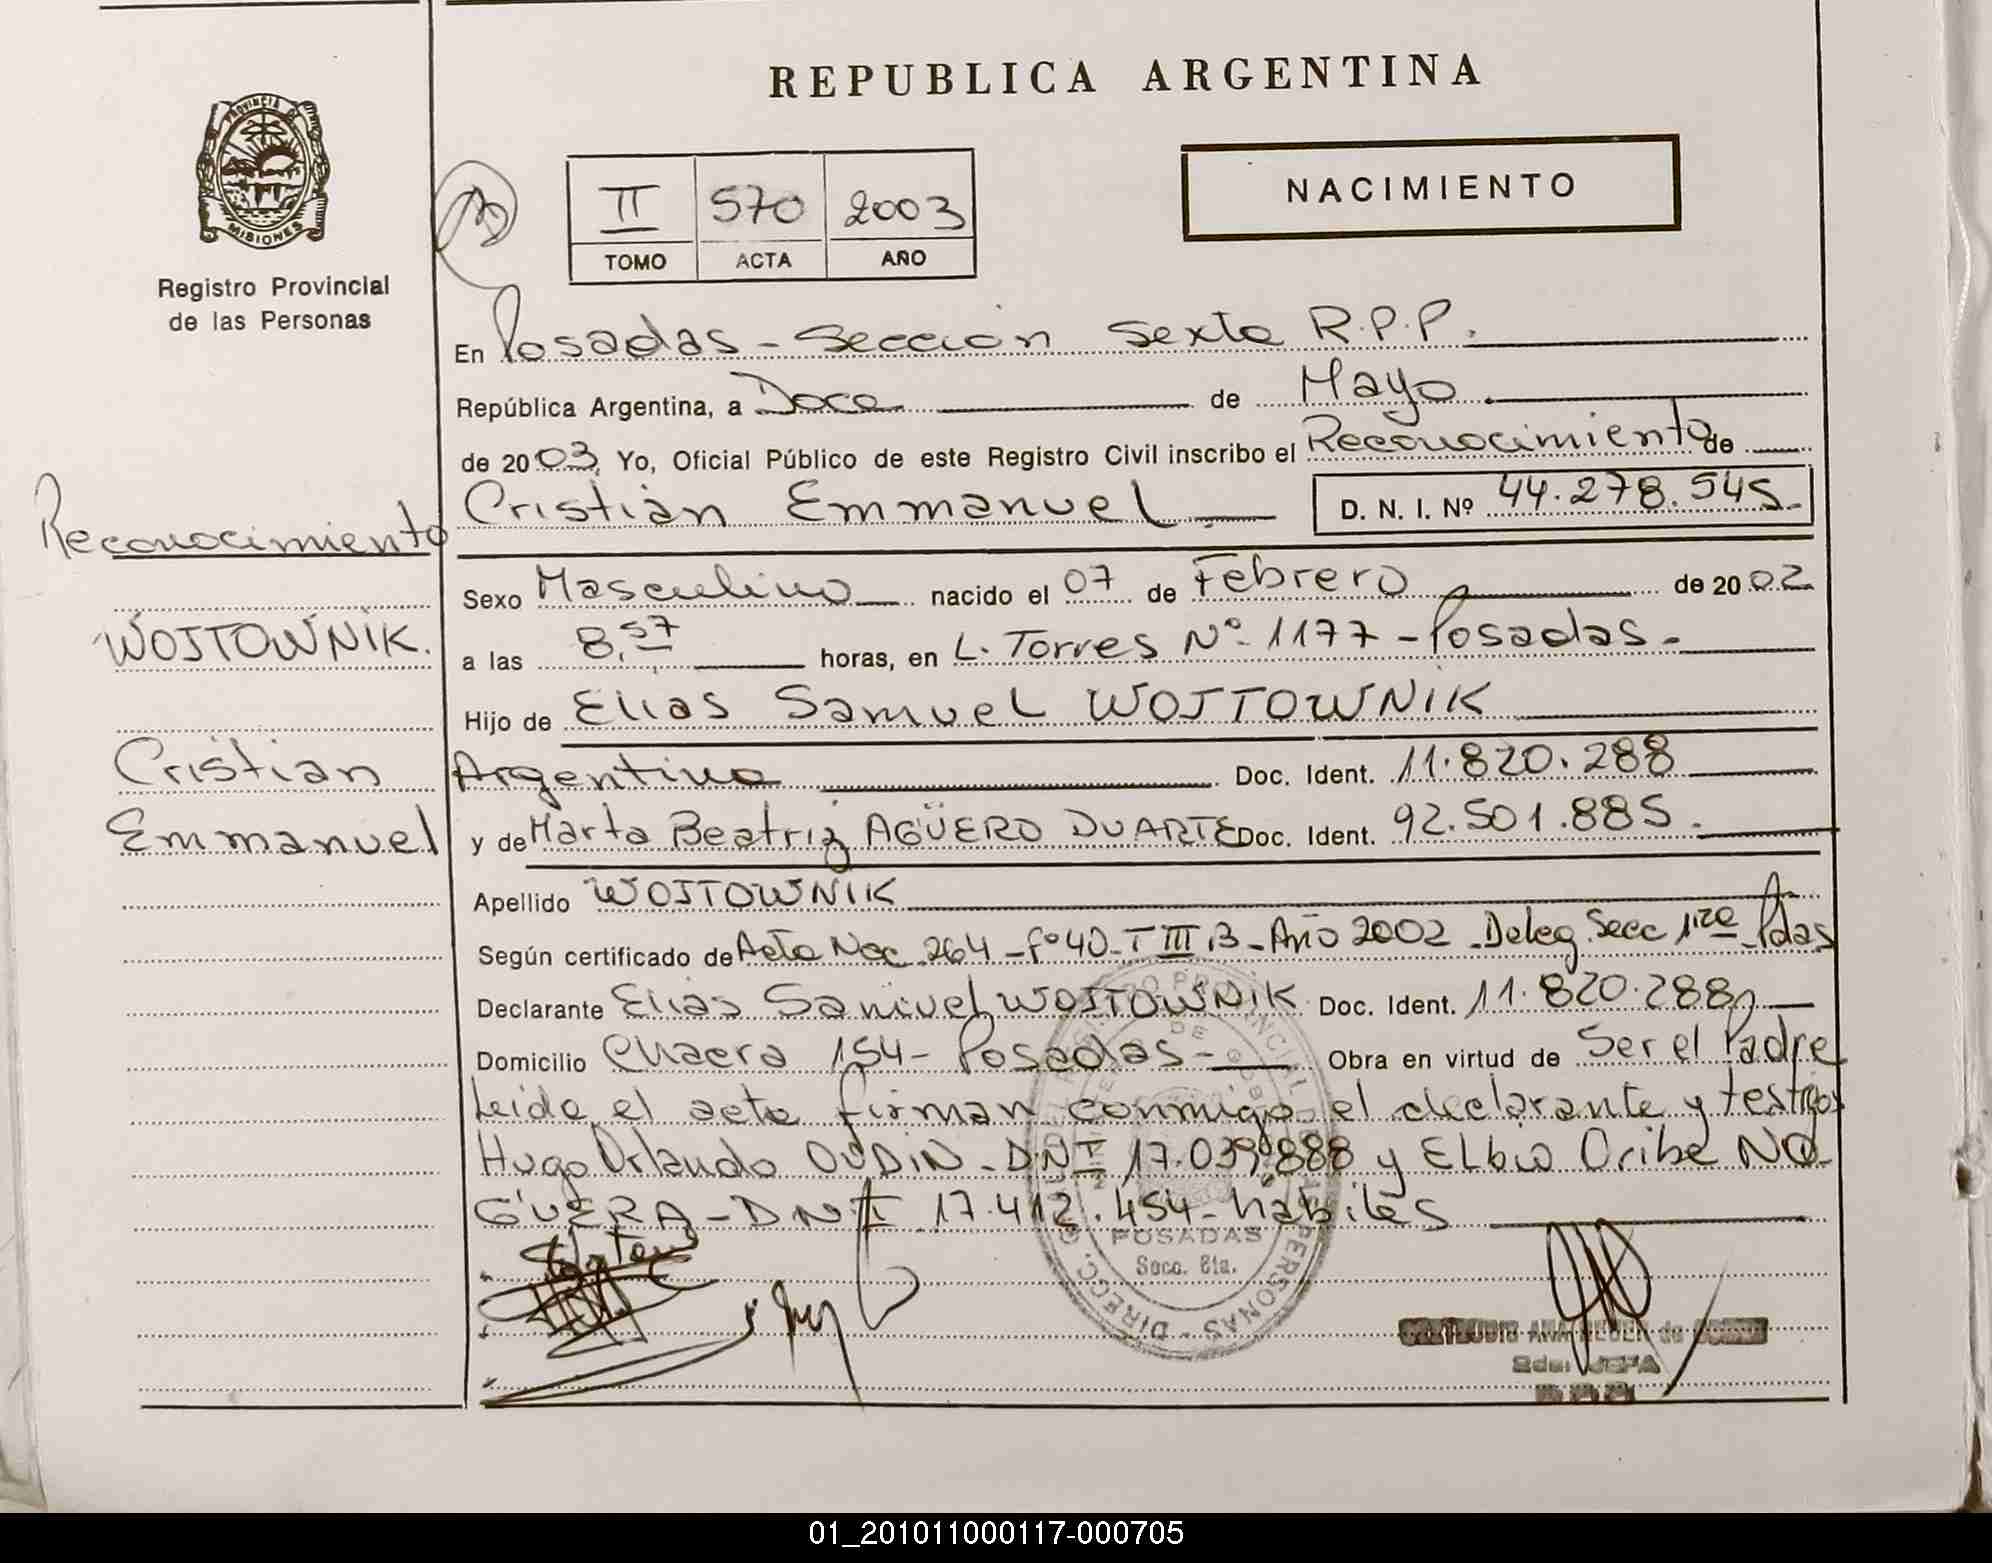 REPUBLICA ARGENTINA
PROVINCIA DE
MISIONES
Registro Provincial
de las Personas
NACIMIENTO
II 570 2003
TOMO ACTA AÑO
En Posadas - Sección Sexta R.P.P.
República Argentina, a Doce de Mayo
de 2003, Yo, Oficial Público de este Registro Civil inscribo el Reconocimiento de
Cristian Emmanuel D. N. I. Nº 44.278.545
Reconocimiento
WOJTOWNIK.
Cristian
Emmanuel
Sexo Masculino nacido el 07 de Febrero de 2002
a las 8,57 horas, en L. Torres Nº 1177 - Posadas -
Hijo de Elias Samuel WOJTOWNIK
Argentino Doc. Ident. 11.820.288
y de Marta Beatriz AGÜERO DUARTE Doc. Ident. 92.501.885.
Apellido WOJTOWNIK
Según certificado de Acta Nac. 264 - fº 40 - T III B - Año 2002 - Deleg. Secc 1ra Pdas
Declarante Elias Samuel WOJTOWNIK Doc. Ident. 11.820.288
Domicilio 154 - Posadas - Obra en virtud de Ser el Padre
Leida el acta firman conmigo el declarante y testigos
Hugo Orlando OUDIN - DNI 17.039.888 y ELbio Oribe NO
GUERA - DNI 17.412.454 - hábiles
POSADAS
Secc. 6ta.
JEFA
01_201011000117-000705